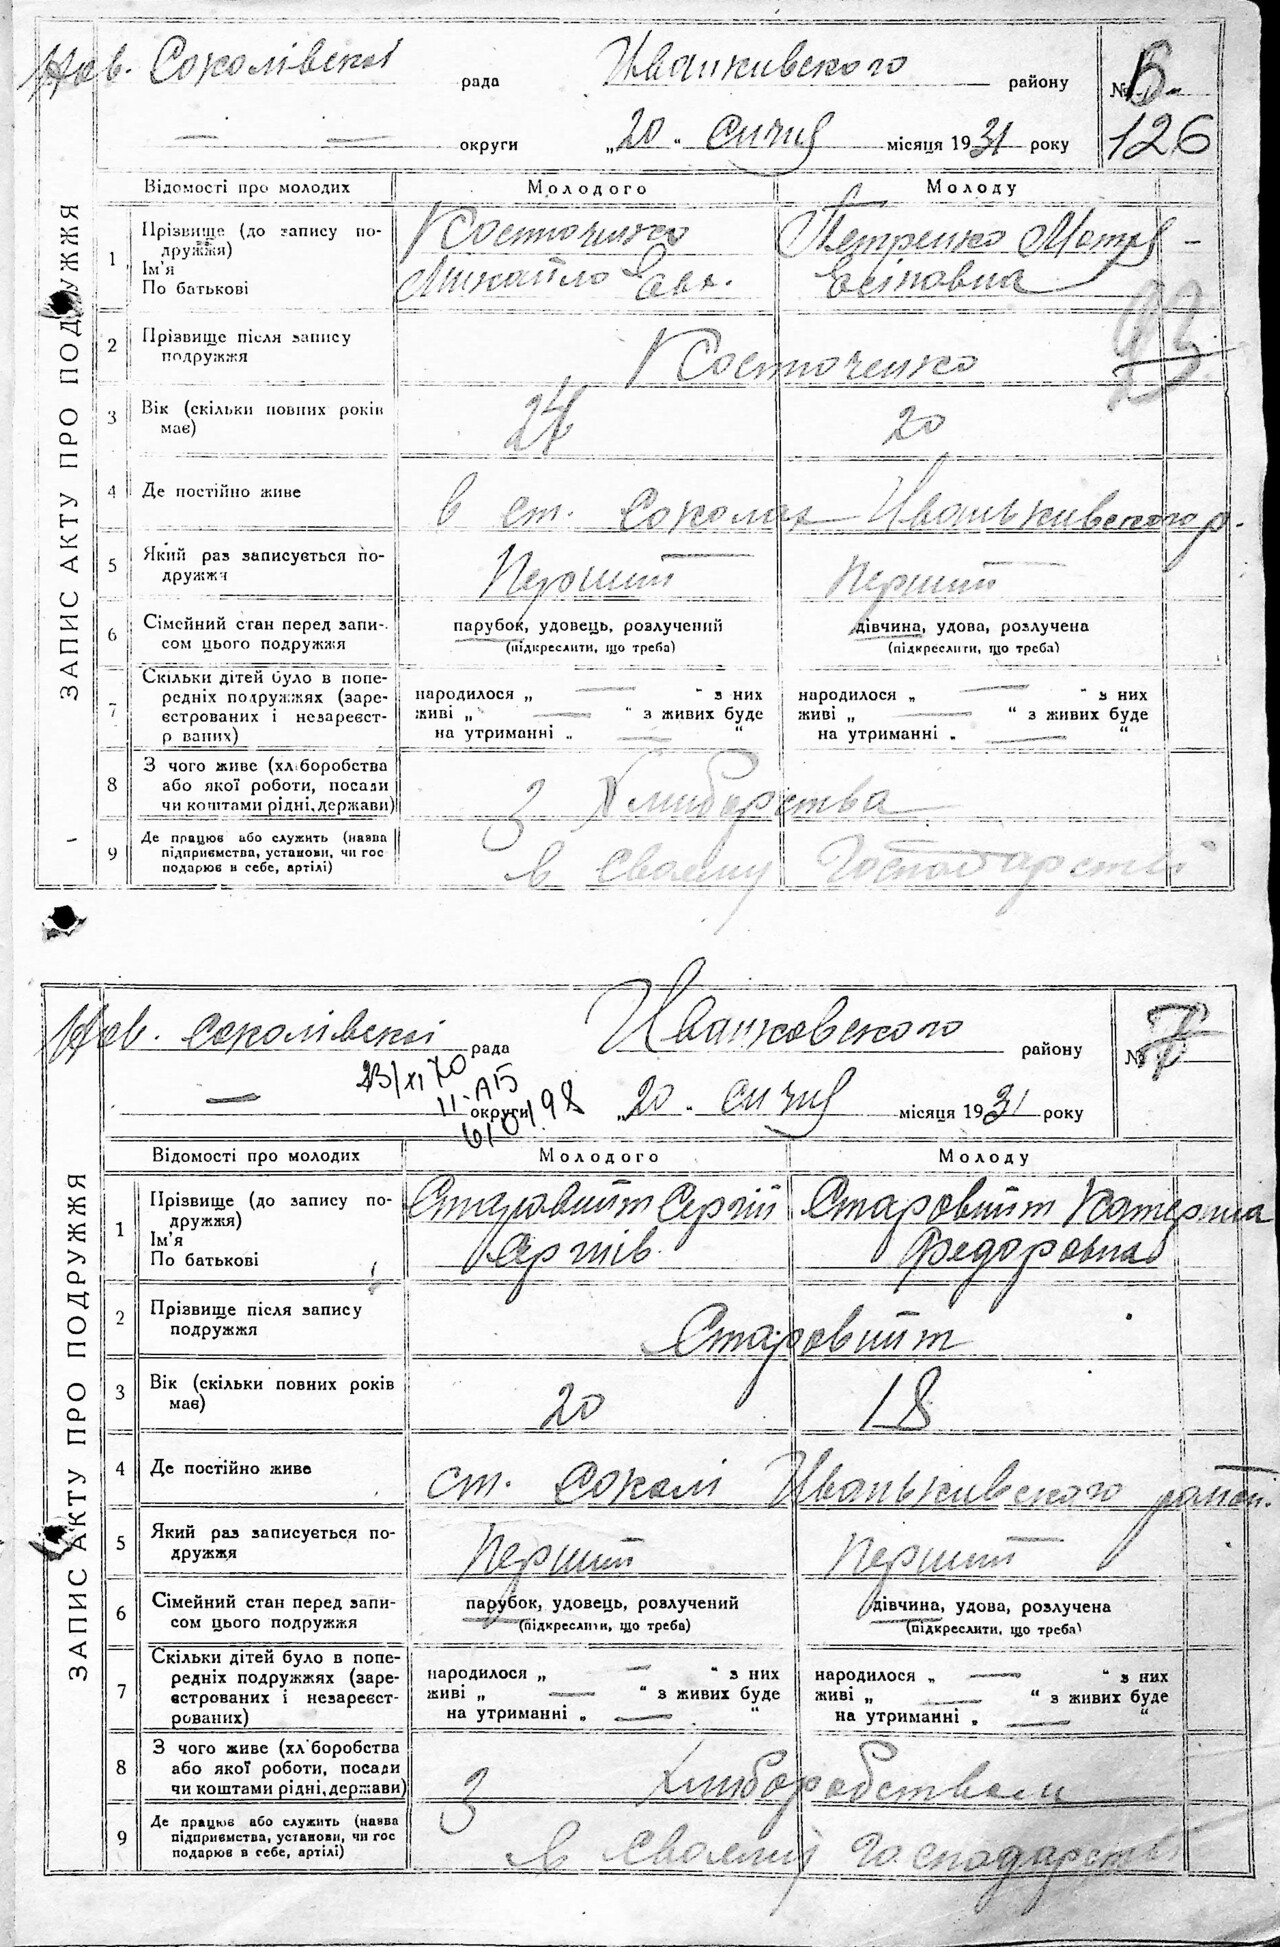 ЗАПИС АКТУ ПРО ПОДРУЖЖЯ
Нов. Соколівської рада Иванкивского району № 6
округи „20" сичня місяця 1931 року 126
Відомості про молодих Молодого Молоду
1 Прізвище (до запису подружжя) Ім'я По батькові
Костюченко Михайло Євх. Петренко Мотря Єсіповна
2 Прізвище після запису подружжя Костюченко
23
3 Вік (скільки повних років має) 24 20
4 Де постійно живе в ст. Соколах Иванькивского р.
5 Який раз записується подружжя Перший Перший
6 Сімейний стан перед записом цього подружжя парубок, удовець, розлучений дівчина, удова, розлучена
(підкреслити, що треба) (підкреслити, що треба)
7 Скільки дітей було в попередніх подружжях (зареєстрованих і незареєстрованих)
народилося „ — " з них народилося „ — " з них
живі „ — " з живих буде живі „ — " з живих буде
на утриманні „ — " на утриманні „ — "
8 З чого живе (хліборобства або якої роботи, посади чи коштами рідні, держави) З Хлиборства
9 Де працює або служить (назва підприємства, установи, чи гос подарює в себе, артілі) в своєму Господарстві
ЗАПИС АКТУ ПРО ПОДРУЖЖЯ
Нов. Соколівської рада Иванковского району № 7
23/XI 70
II-АБ
округи „20" сичня місяця 1931 року
Відомості про молодих Молодого Молоду
1 Прізвище (до запису подружжя) Ім'я По батькові
Старовийт Сергій Сергіїв Старовийт Катерина Федоровна
2 Прізвище після запису подружжя Старовийт
3 Вік (скільки повних років має) 20 18
4 Де постійно живе ст. Соколі Иванькивского район.
5 Який раз записується подружжя Перший Перший
6 Сімейний стан перед записом цього подружжя парубок, удовець, розлучений дівчина, удова, розлучена
(підкреслити, що треба) (підкреслити, що треба)
7 Скільки дітей було в попередніх подружжях (зареєстрованих і незареєстрованих)
народилося „ — " з них народилося „ — " з них
живі „ — " з живих буде живі „ — " з живих буде
на утриманні „ — " на утриманні „ — "
8 З чого живе (хліборобства або якої роботи, посади чи коштами рідні, держави) З хлиборобством
9 Де працює або служить (назва підприємства, установи, чи гос подарює в себе, артілі) в своєму Господарстві